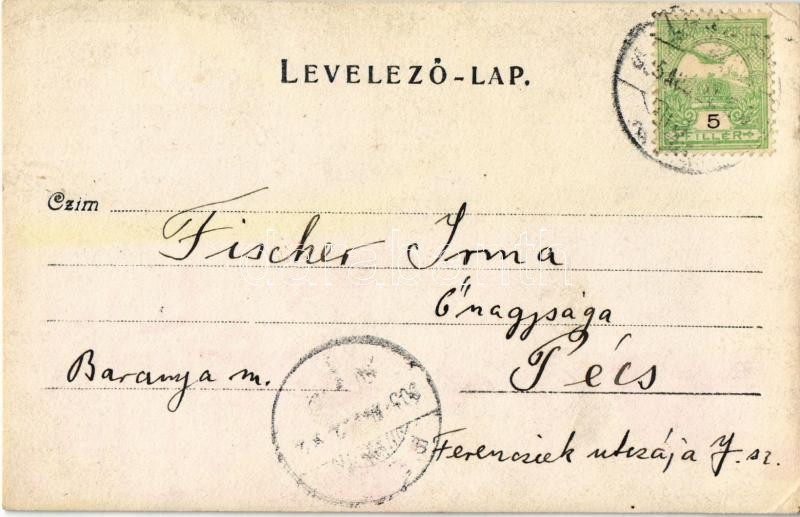 LEVELEZŐ-LAP.
5
FILLÉR
Czim
Fischer Irma
Őnagysága
Baranya m.
Pécs
Ferencziek utczája 7. sz.